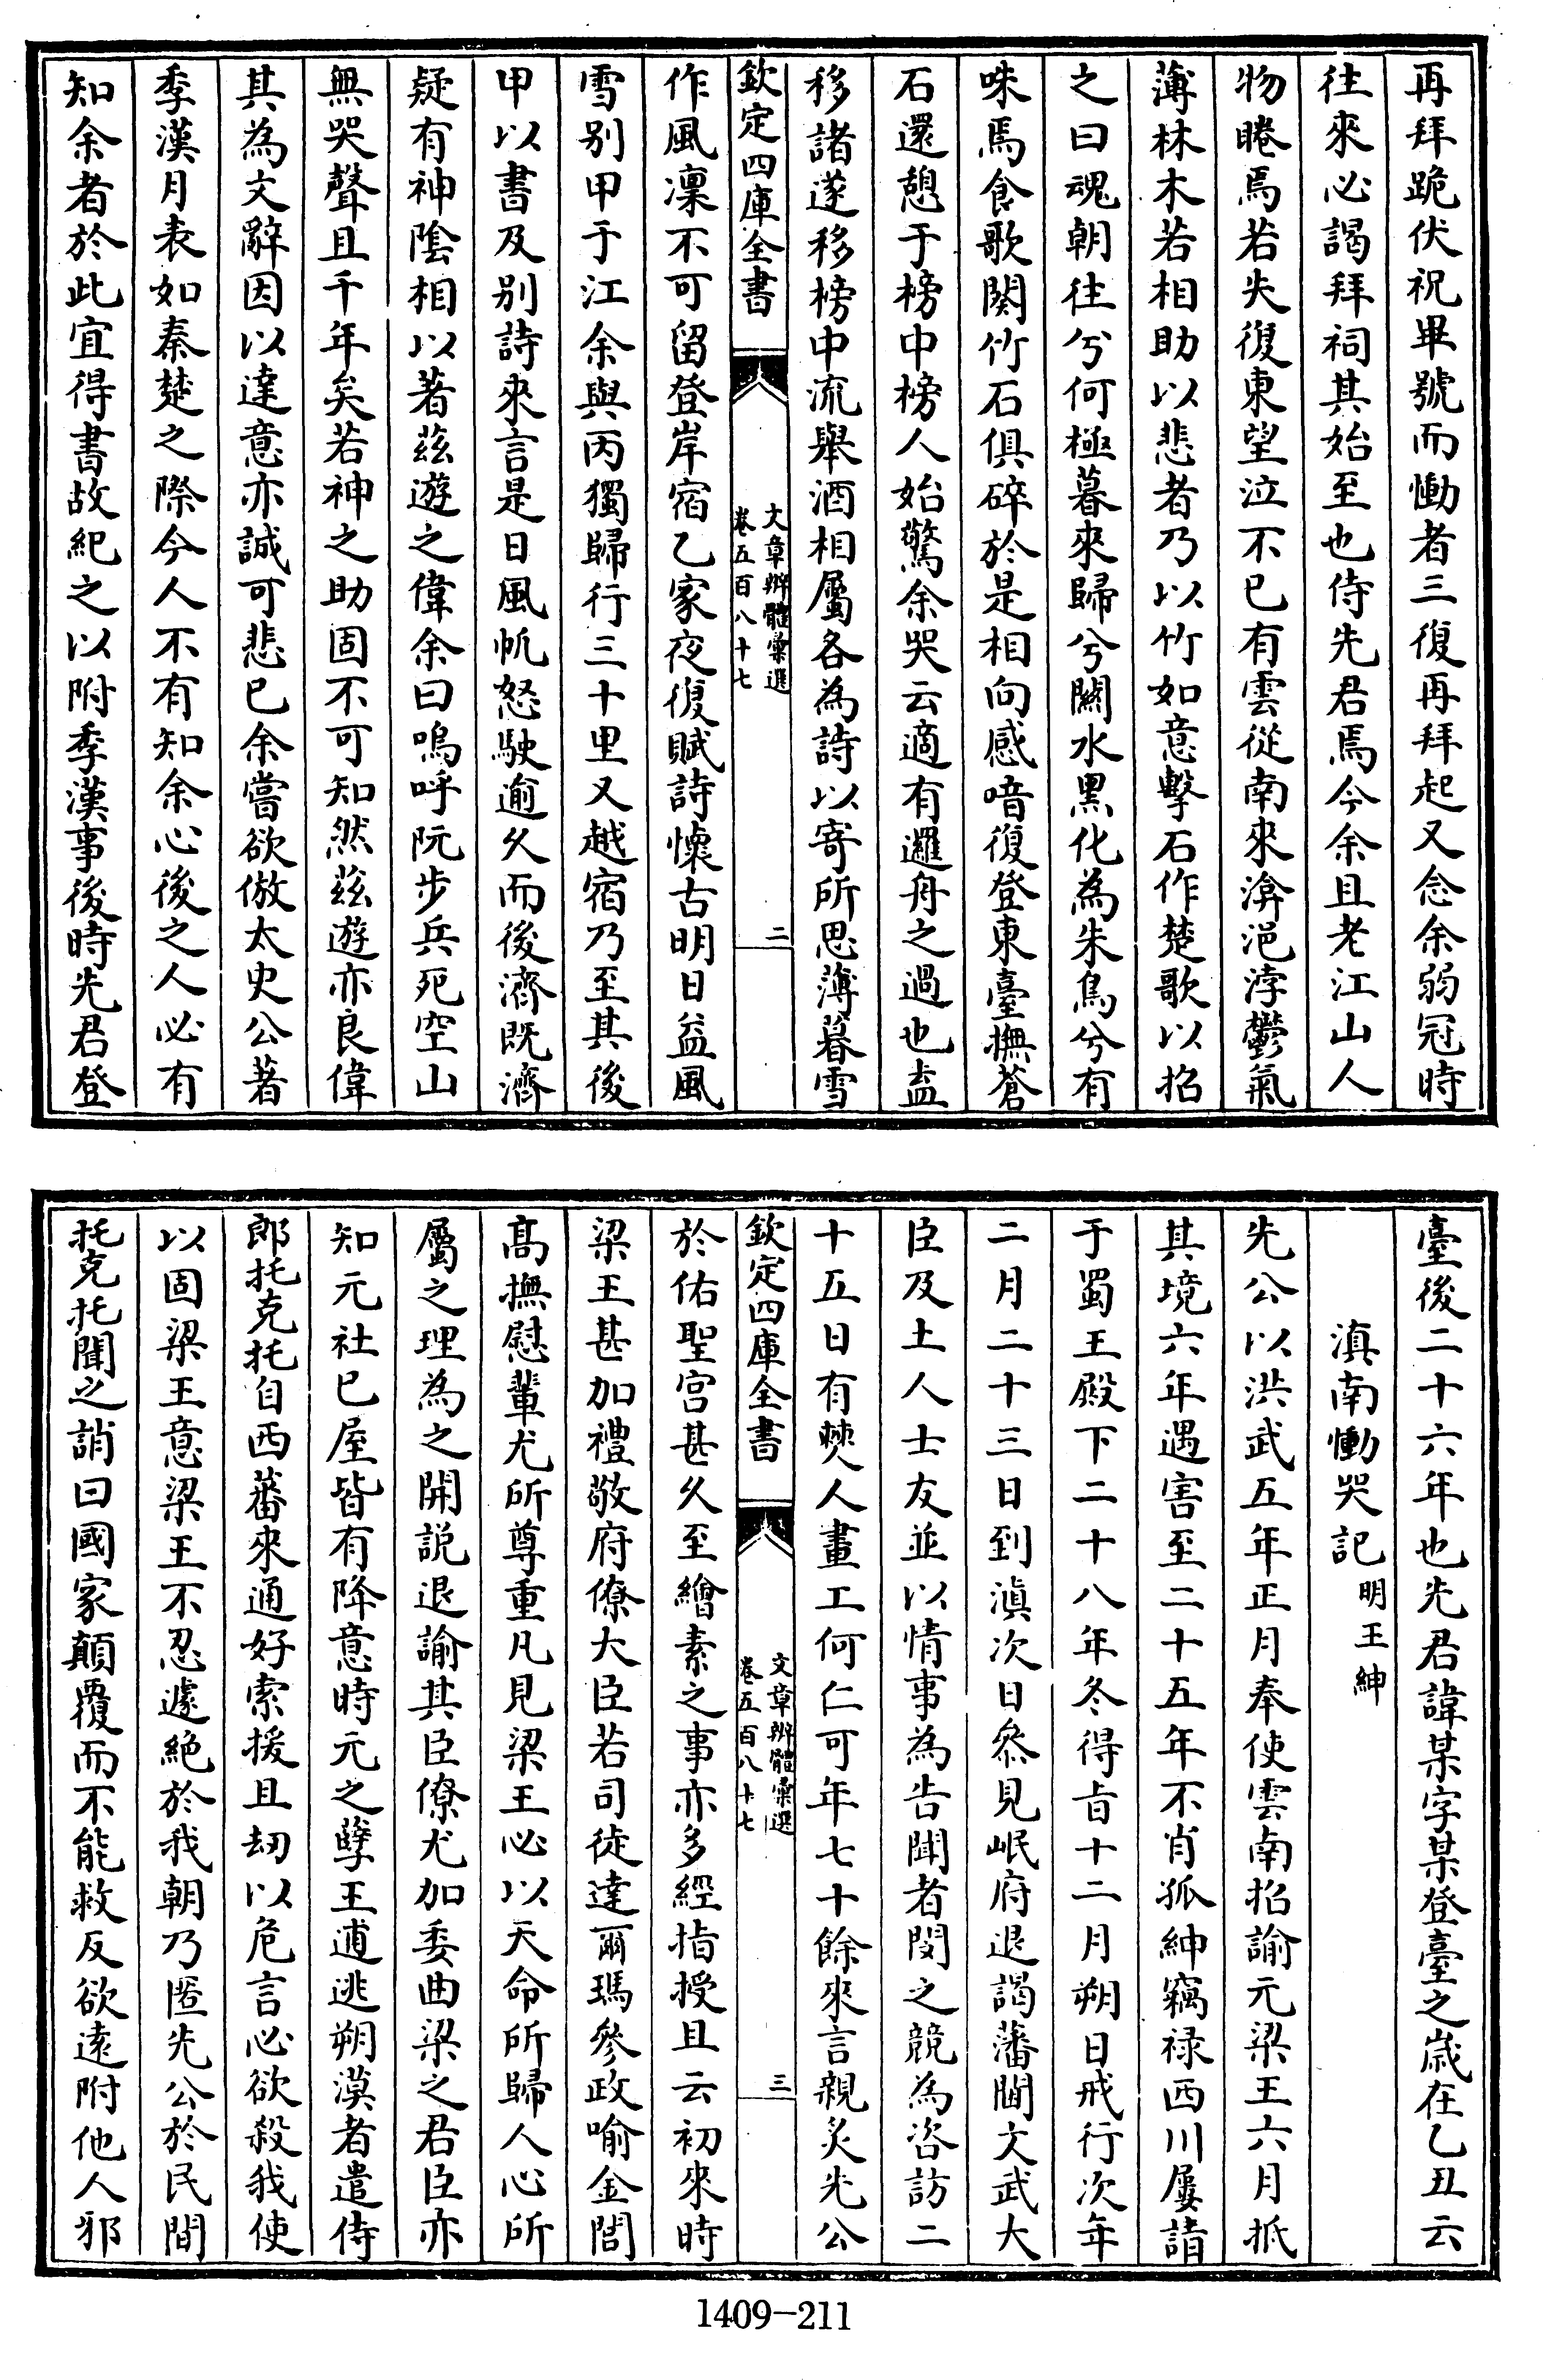 再拜跪伏祝畢號而慟者三復再拜起又念余弱冠時
往來必謁拜祠其始至也侍先君焉今余且老江山人
物睠焉若失復東望泣不已有雲從南來渰浥浡鬱氣
薄林木若相助以悲者乃以竹如意擊石作楚歌以招
之曰魂朝往兮何極暮來歸兮關水黑化為朱鳥兮有
咮焉食歌闋竹石俱碎於是相向感唶復登東臺撫蒼
石還憩于榜中榜人始驚余哭云適有邏舟之過也盍
移諸遂移榜中流舉酒相屬各為詩以寄所思薄暮雪
欽定四庫全書
文章辨體彙選
卷五百八十七
二
作風凜不可留登岸宿乙家夜復賦詩懷古明日益風
雪别甲于江余與丙獨歸行三十里又越宿乃至其後
甲以書及别詩來言是日風帆怒駛逾久而後濟既濟
疑有神陰相以著茲遊之偉余曰嗚呼阮步兵死空山
無哭聲且千年矣若神之助固不可知然茲遊亦良偉
其為文辭因以達意亦誠可悲已余嘗欲倣太史公著
季漢月表如秦楚之際今人不有知余心後之人必有
知余者於此宜得書故紀之以附季漢事後時先君登
臺後二十六年也先君諱某字某登臺之歲在乙丑云
滇南慟哭記 明王紳
先公以洪武五年正月奉使雲南招諭元梁王六月抵
其境六年遇害至二十五年不肖孤紳竊禄西川屢請
于蜀王殿下二十八年冬得旨十二月朔日戒行次年
二月二十三日到滇次日叅見岷府退謁藩閫文武大
臣及土人士友並以情事為告聞者閔之競為咨訪二
十五日有僰人畫工何仁可年七十餘來言親炙先公
欽定四庫全書
文章辨體彙選
卷五百八十七
三
於佑聖宫甚久至繪素之事亦多經指授且云初來時
梁王甚加禮敬府僚大臣若司徒達爾瑪參政喻金閭
髙撫慰輩尤所尊重凡見梁王必以天命所歸人心所
屬之理為之開説退諭其臣僚尤加委曲梁之君臣亦
知元社已屋皆有降意時元之孽王逋逃朔漠者遣侍
郎托克托自西蕃來通好索援且刼以危言必欲殺我使
以固梁王意梁王不忍遽絶於我朝乃匿先公於民間
托克托聞之誚曰國家顛覆而不能救反欲逺附他人邪
1409-211